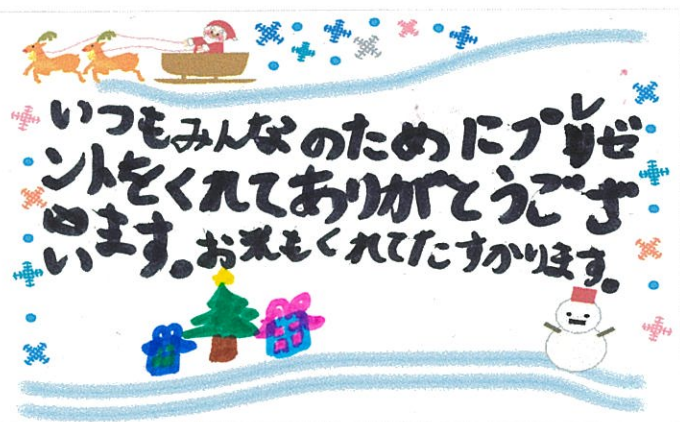 いつもみんなのためにプレゼ
ントをくれてありがとうござ
います。お米もくれてたすかります。